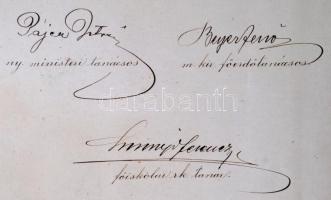 Pájer István
ny. ministeri tanácsos
Beyer Jenő
m. kir. főerdőtanácsos
darabanth
Ferencz
főiskolai rk. tanár.